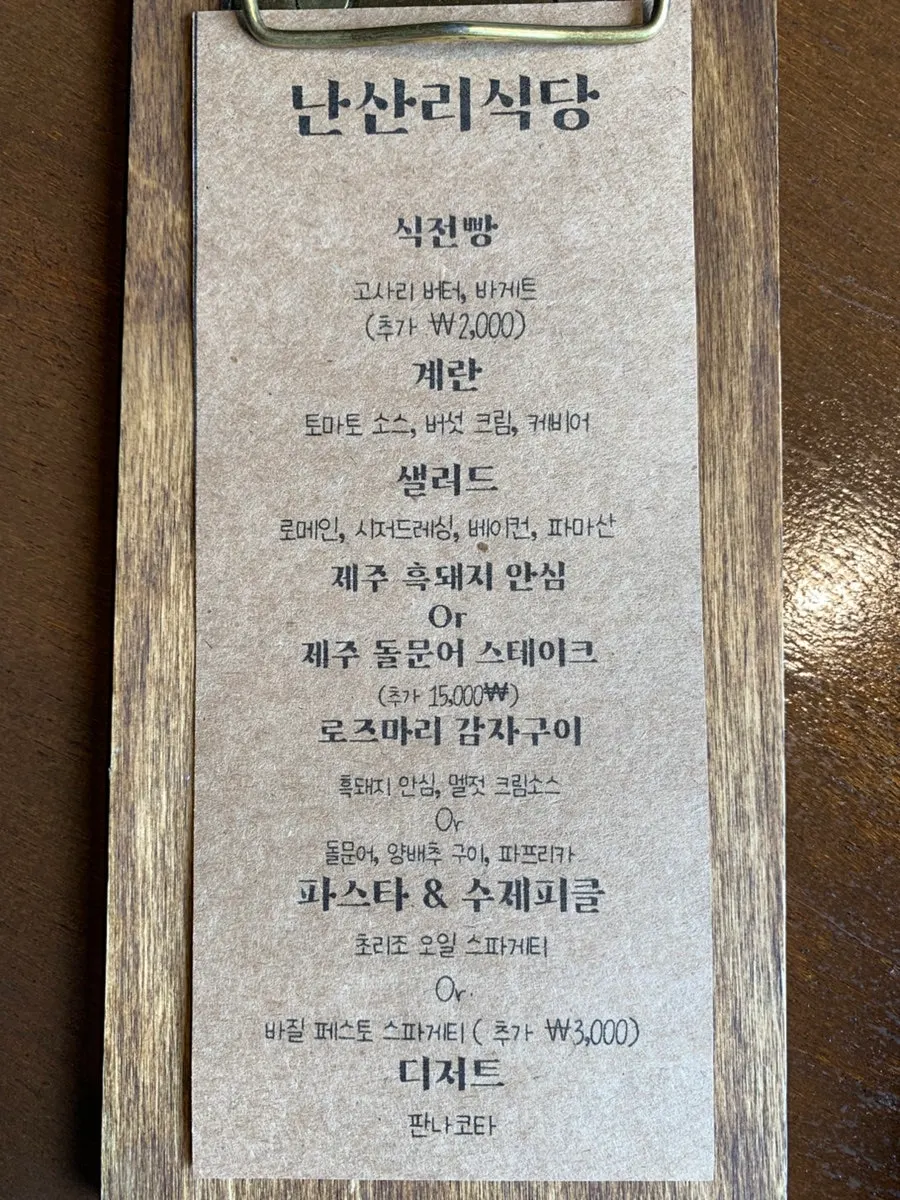 난산리식당
식전빵
고사리 버터, 바게트
(추가 ₩2,000)
계란
토마토 소스, 버섯 크림, 케비어
샐러드
로메인, 시저드레싱, 베이컨, 파마산
제주 흑돼지 안심
Or
제주 돌문어 스테이크
(추가 15,000₩)
로즈마리 감자구이
흑돼지 안심, 멜젓 크림소스
Or
돌문어, 양배추 구이, 파프리카
파스타 & 수제피클
초리조 오일 스파게티
Or.
바질 페스토 스파게티 ( 추가 ₩3,000)
디저트
판나코타